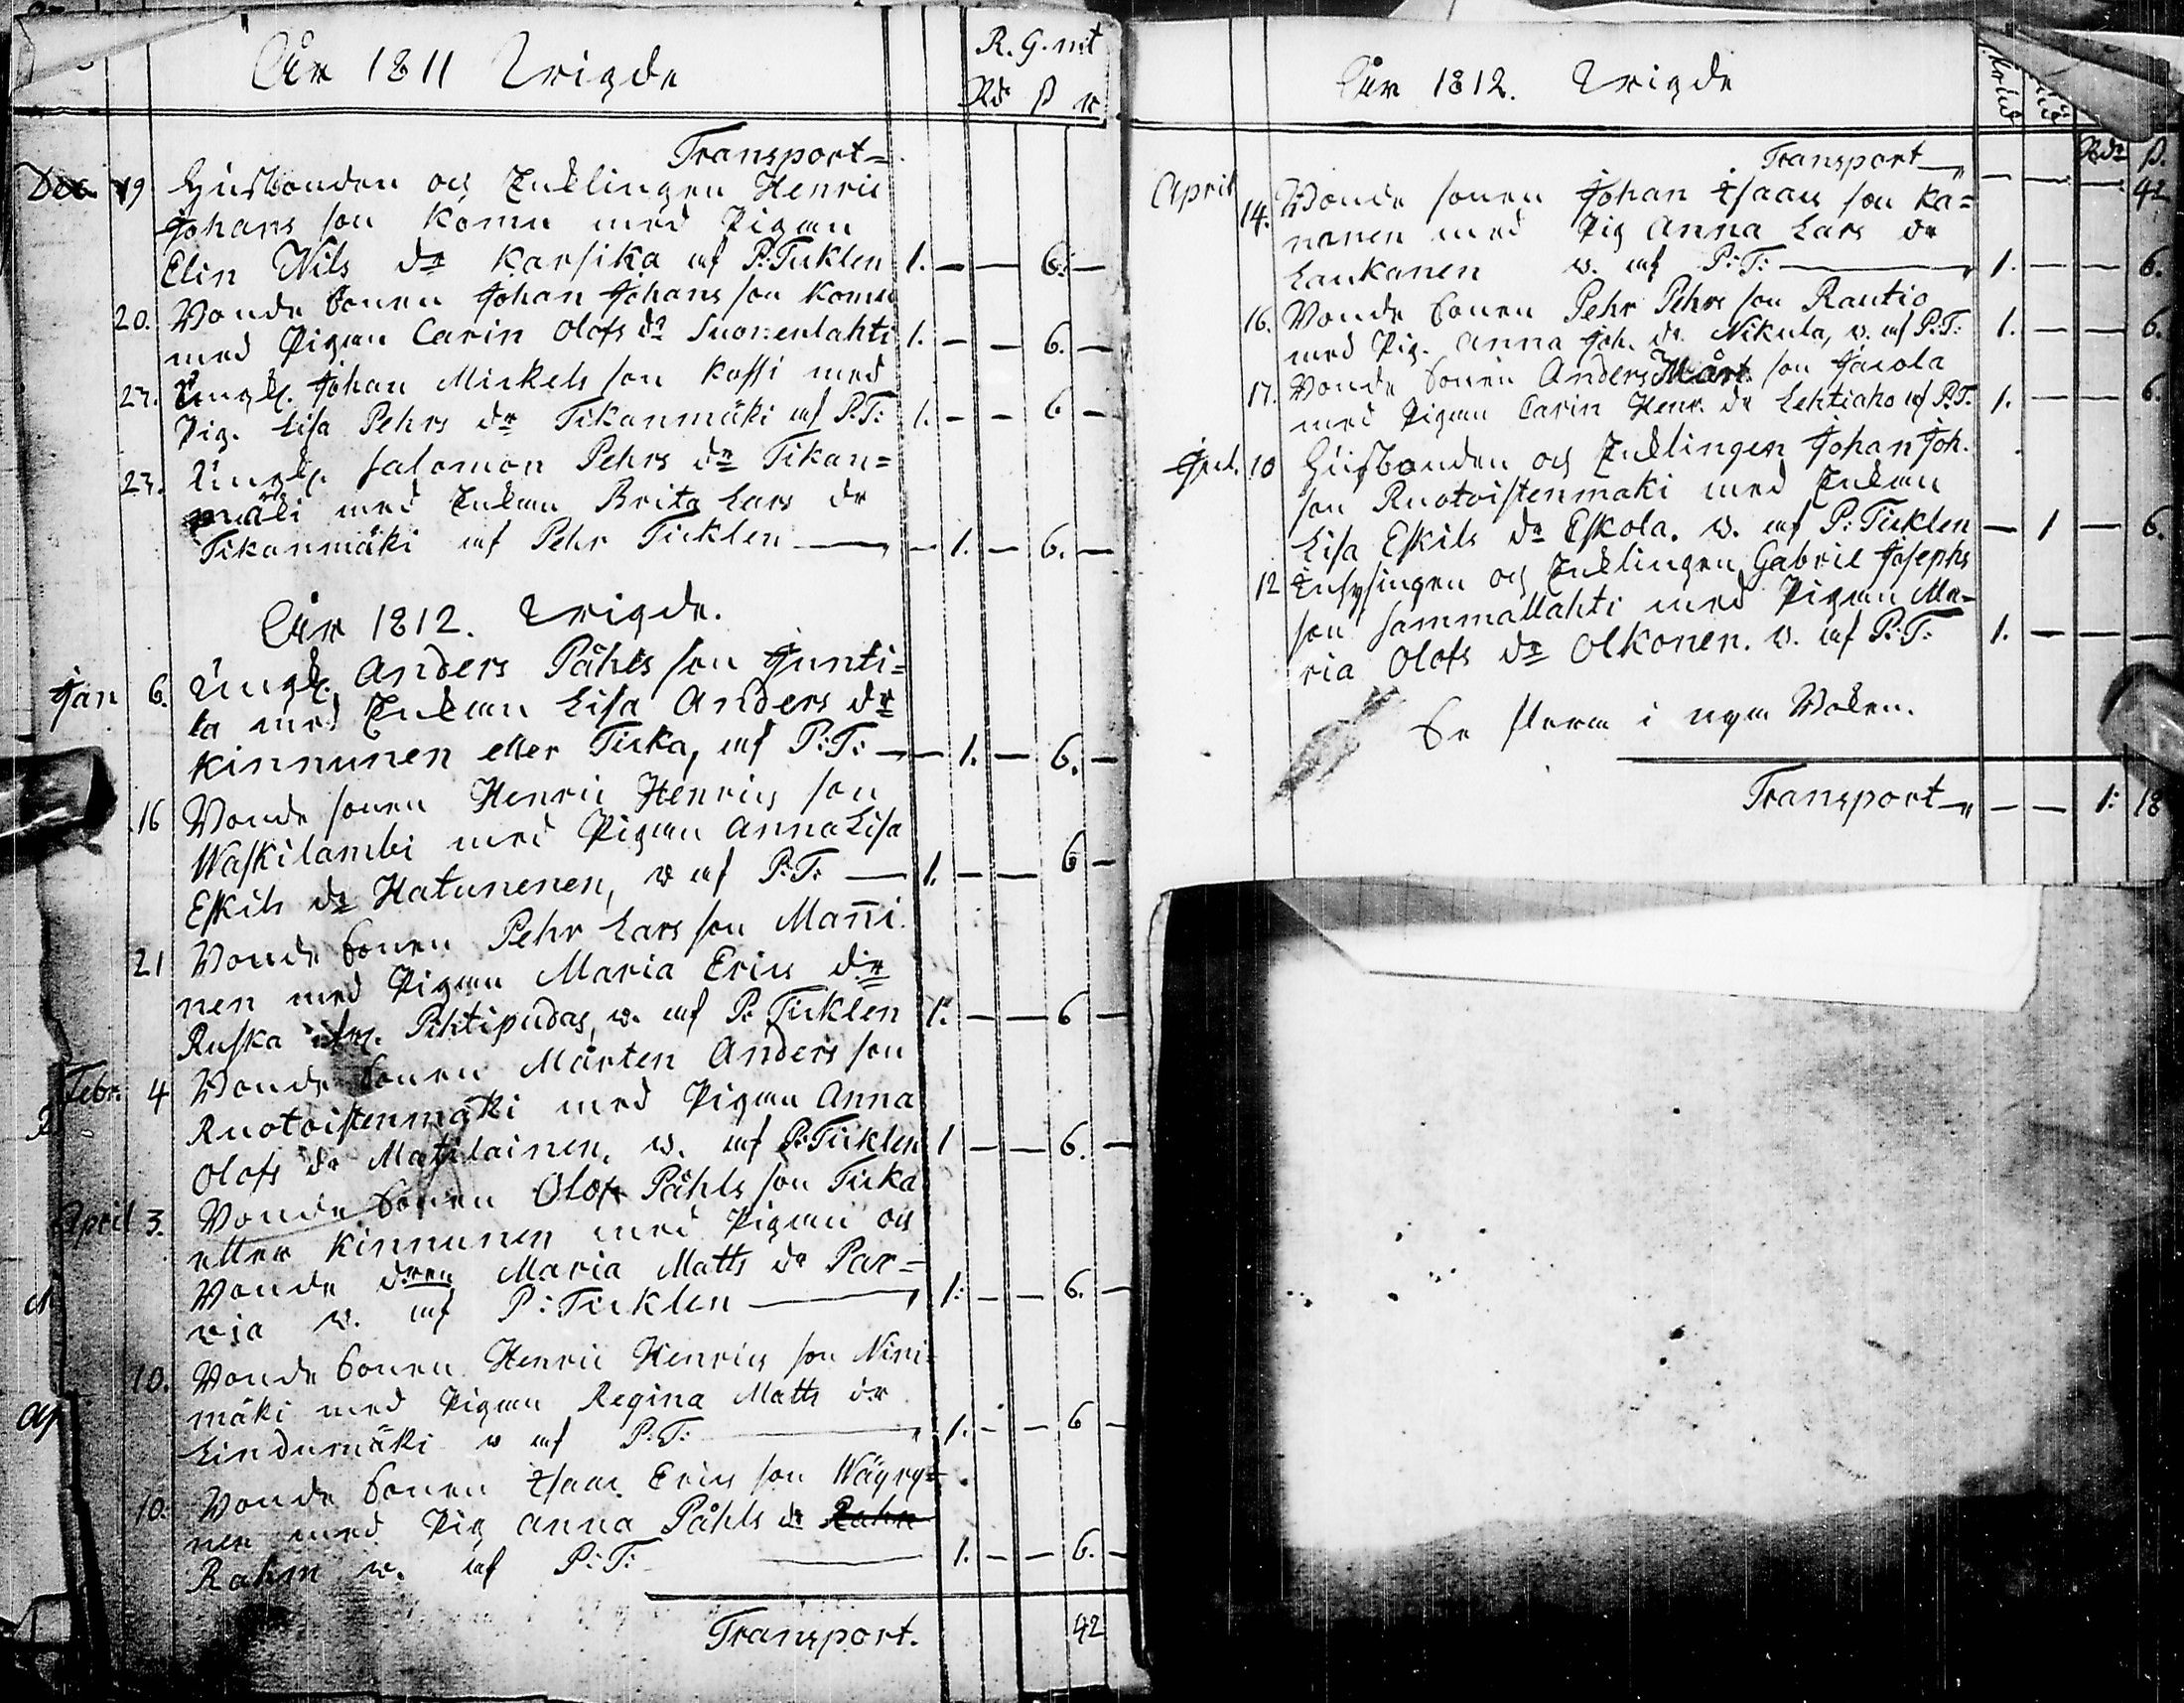 År 1811 Wigde
R. G. mt
Rd ß r
Transport =
Dec. 19 Husbonden och Enklingen Henric
Johans son Komu med Pigan
Elin Nils dr Karsika af P: Ticklen 1. — — 6. —
20. Bonde Sonen Johan Johans son Komu
med Pigan Carin Olofs dr Suovenlahti 1. — — 6. —
27. Ungk. Johan Mickels son Kossi med
Pig. Lisa Pehrs dr Tikanmäki af P.T: 1. — — 6 —
27. Ungk. Salomon Pehrs dr Tikan=
mäki med Enkan Brita Lars dr
Tikanmäki af Pehr Ticklen — — 1. — 6. —
År 1812. Wigde.
Jan 6. Ungk. Anders Påhls son Junti=
la med Enkan Lisa Anders dr
Kinnunen eller Ticka, af P:T: — — 1. — 6. —
16 Bonde sonen Henric Henrics son
Waskilambi med Pigan Anna Lisa
Eskils dr Hatunenen, v af P:T: — 1. — — 6 —
21 Bonde Sonen Pehr Lars son Mañi
nen med Pigan Maria Erics dr
Ruska ifr. Pihtipudas, v. af P: Ticklen 1. — — 6 —
Febr. 4 Bonde Sonen Mårten Anders son
Ruotoistenmäki med Pigan Anna
Olofs dr Matilainen, v. af P: Ticklen 1 — — 6. —
April 3. Bonde Sonen Olof Påhls son Ticka
eller Kinnunen med Pigan och
Bonde dren Maria Matts dr Par=
via v. af P: Ticklen — 1: — — 6. —
10. Bonde Sonen Henric Henrics son Nini=
mäki med Pigan Regina Matts dr
Lindumäki v af P:T: — 1. — — 6 —
10. Bonde Sonen Isaac Erics son Wäyry=
nen med Pig Anna Påhls dr Rahn
Rahm v. af P:T: — 1. — — 6. —
Transport. 42
År 1812. Wigde
Rdr ß.
Transport — — — — 42
April 14. Bonde sonen Johan Isaacs son Ka=
nanen med Pig Anna Lars dr
Laukanen v. af P:T: — 1. — — 6.
16. Bonde Sonen Pehr Pehrs son Rautio
med Pig. Anna Joh. dr. Nikula, v. af P:T: 1. — — 6.
17. Bonde Sonen Anders Mårt. son Jacola
med Pigan Carin Henr. dr Lehtiaho af P.T. 1. — — 6.
10 Husbonden och Enklingen Johan Joh.
son Ruotoistenmäki med Enkan
Lisa Eskils dr Eskola. v. af P: Ticklen — 1 — 6.
12 Inhysingen och Enklingen Gabriel Josephs
son Sammallahti med Pigan Ma=
ria Olofs dr Olkonen. v. af P:T: 1. — — —
Se flera i nya Boken.
Transport — — — 1: 18